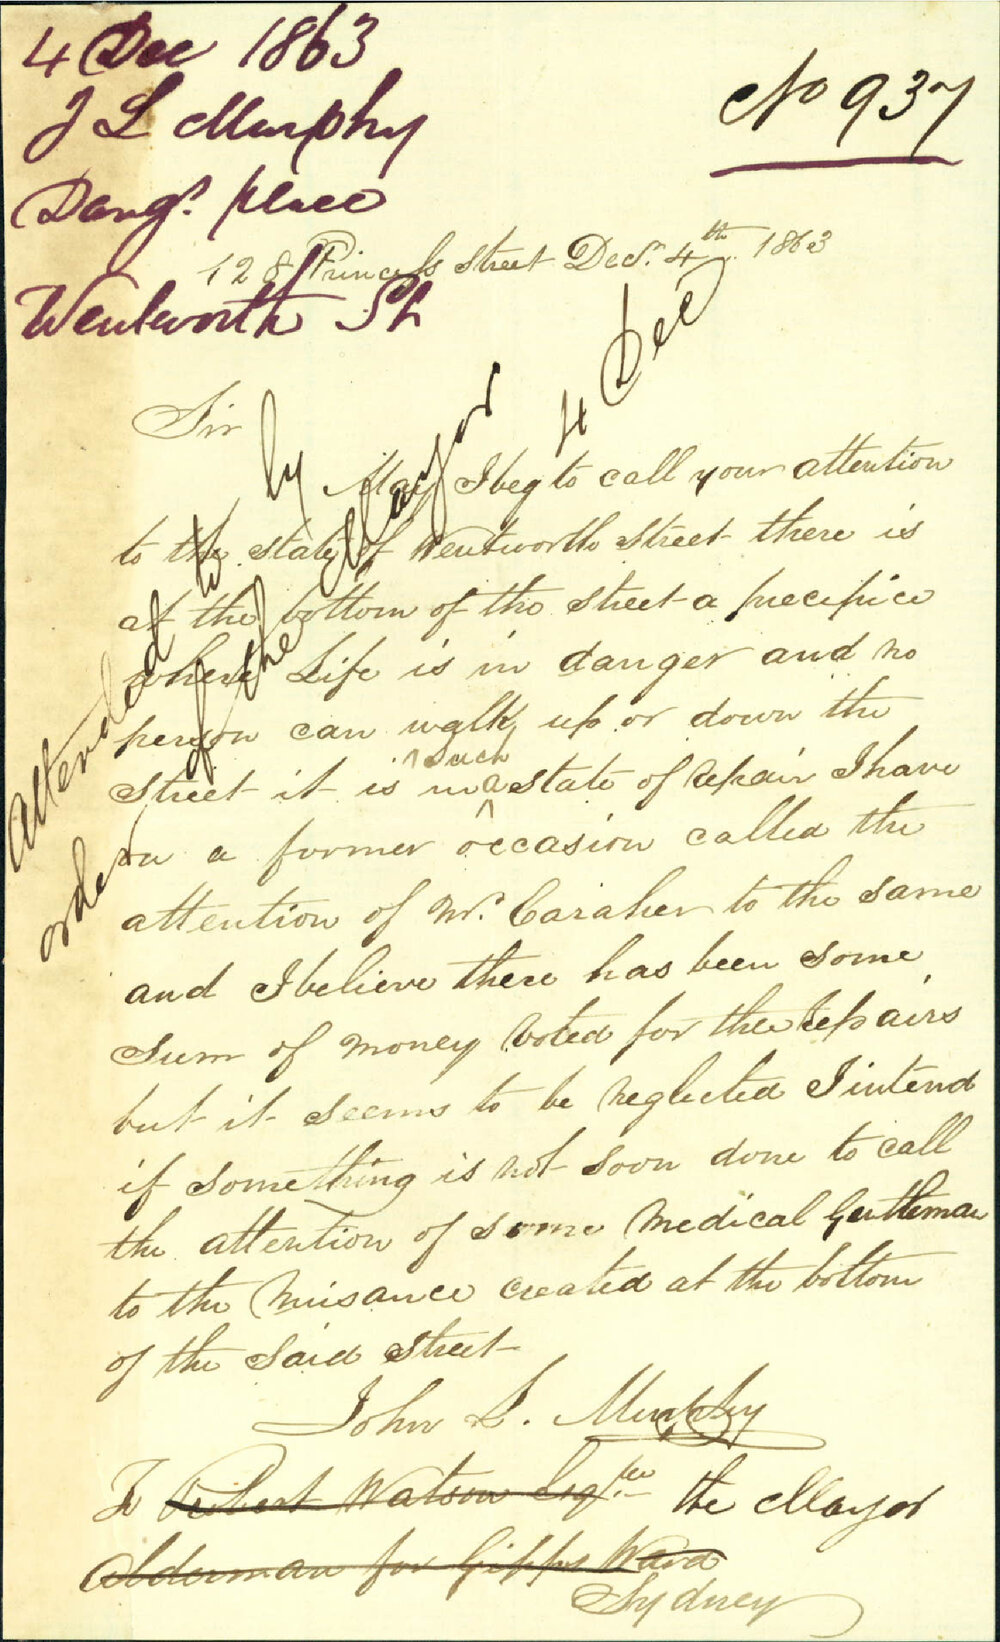 4 Dec 1863
J L Murphy
Dang.s place
Wentworth St
No 937
128 Princess Street Decr. 4th 1863
attended to by
order of the Mayor
4 Dec
Sir
May I beg to call your attention
to the state of Wentworth Street there is
at the bottom of the street a precipice
where Life is in danger and no
person can walk up or down the
such
street it is in a state of repair I have
on a former occasion called the
attention of Mr. Caraher to the same
and I believe there has been some
sum of money voted for the repairs
but it seems to be neglected I intend
if something is not soon done to call
the attention of some Medical Gentleman
to the Nuisance created at the bottom
of the said street
John L. Murphy
To Robert Watson Esqre the Mayor
Alderman for Gipps Ward
Sydney